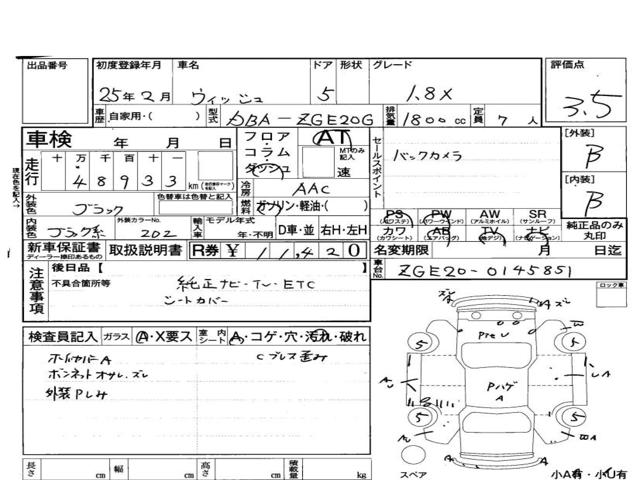 出品番号 初度登録年月 車名 ドア 形状 グレード 評価点
25年2月 ウィッシュ 5 1.8X 3.5
車歴 自家用・( ) 型式 DBA-ZGE20G 排気量 1800cc 定員 7人
車検 年 月 日 フロア・コラム・ダッシュ AT MTのみ記入 速
走行 十 万 千 百 十 一
4 8 9 3 3 km
現在色を記入→
冷房 AAC
燃料 ガソリン・軽油・( )
外装色 ブラック 色替車は色替と記入
内装色 ブラック系 外装カラーNo. 202 輸入車 モデル年式 年・不明 D車・並 右H・左H
セールスポイント バックカメラ
[外装] B
[内装] B
PS PW AW SR
(パワーウインド) (アルミホイル) (サンルーフ)
カワ AB TV ナビ
(カワシート) (エアバッグ) (地デジ) (ナビゲーション)
純正品のみ丸印
新車保証書 ディーラー捺印あるもの 取扱説明書 R券 ¥ 11,420
名変期限 月 日迄
車台No. ZGE20-0145851
注意事項 後日品【 】
不具合箇所等 純正ナビ・TV・ETC
シートカバー
ロック車
検査員記入 ガラス A・X要ス 室内シート A・コゲ・穴・汚れ・破れ
ボンネットオサレ、ズレ Cプレス歪み
外装Pしみ
5 5 5 5
スペア 小A有・小U有
長さ cm 幅 cm 高さ cm 積載量 kg